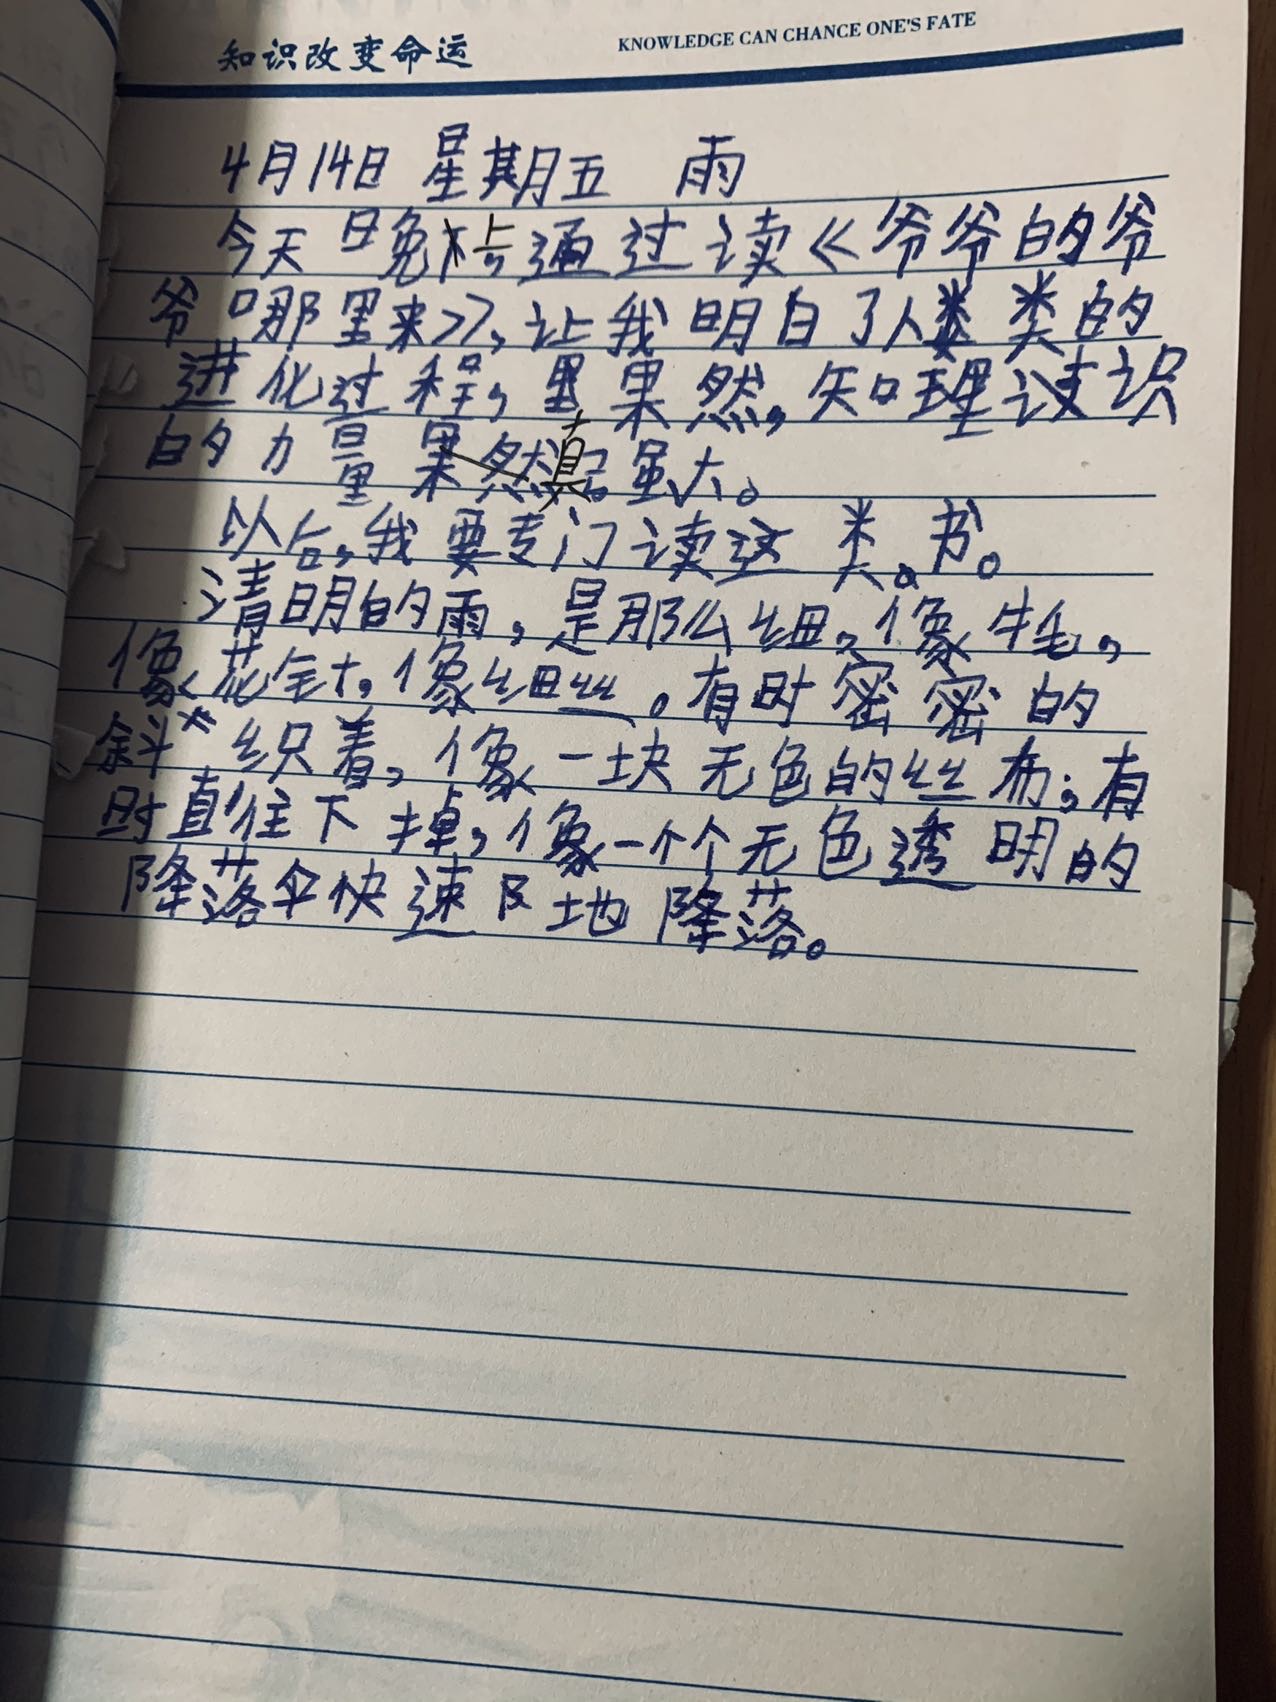 知识改变命运
KNOWLEDGE CAN CHANCE ONE'S FATE
4月14日 星期五 雨
今天晚上通过读《爷爷的爷
爷哪里来》,让我明白了人类的
进化过程,果然,知识
的力量真强大。
以后,我要专门读这类书。
清明的雨,是那么细、像牛毛,
像花针,像细丝。有时密密的
斜织着,像一块无色的丝布;有
时直往下掉,像一个个无色透明的
降落伞快速地降落。